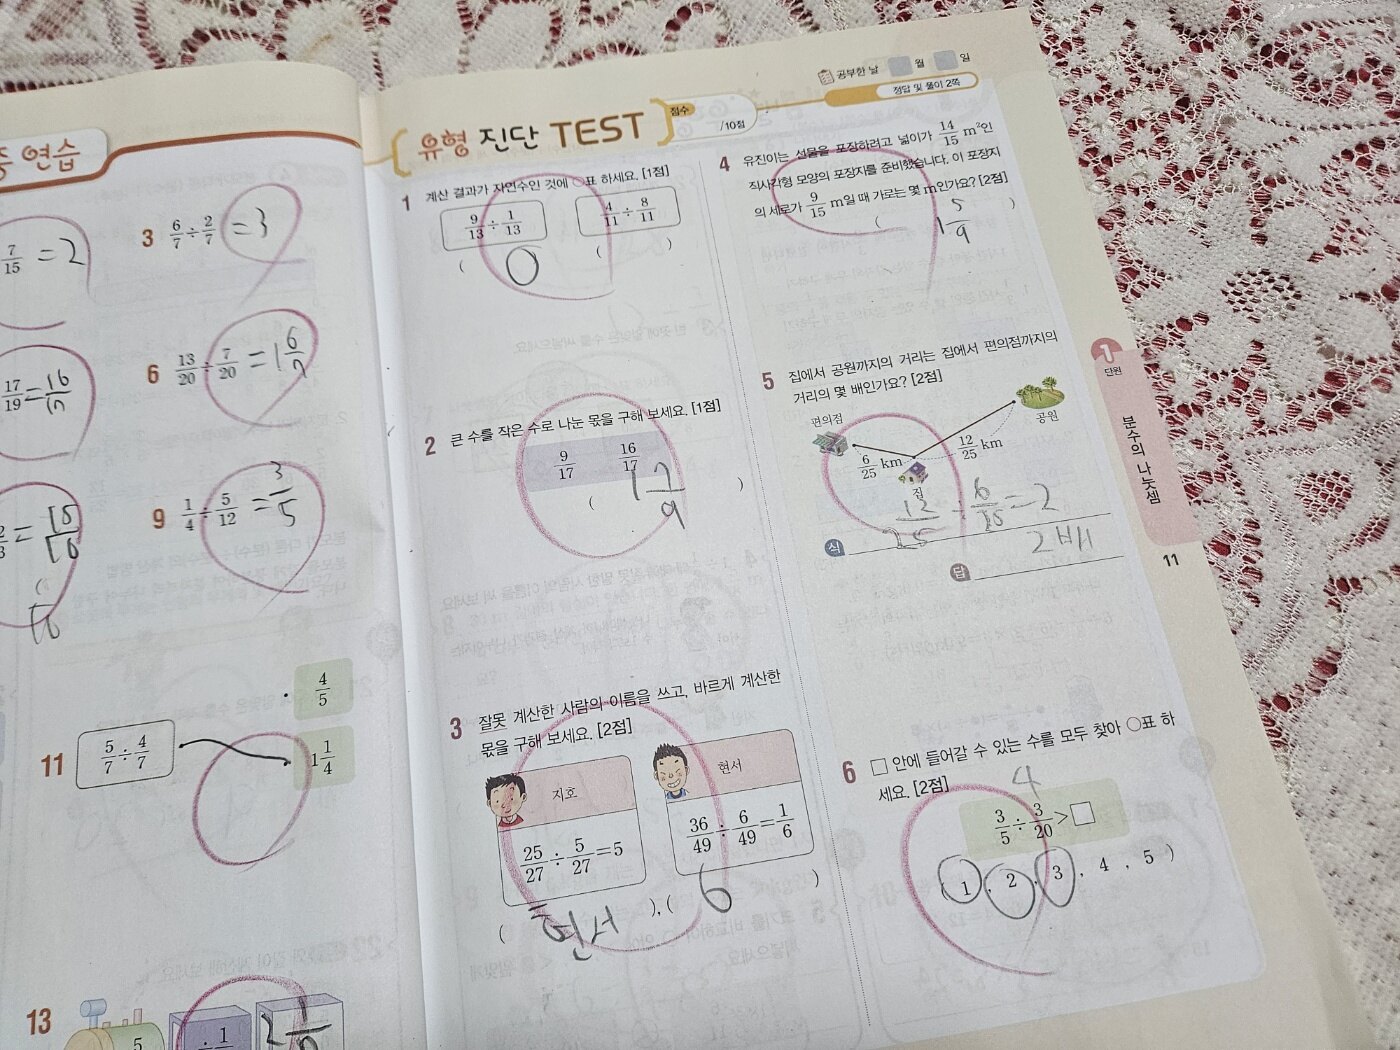 중 연습
7/15 = 2
3 6/7 ÷ 2/7 = 3
17/19 = 16/17
6 13/20 ÷ 7/20 = 1 6/7
9 1/4 ÷ 5/12 = 3/5
11 5/7 ÷ 4/7
4/5
1 1/4
13
유형 진단 TEST
점수
/10점
공부한 날 월 일
정답 및 풀이 2쪽
1 계산 결과가 자연수인 것에 ○표 하세요. [1점]
9/13 ÷ 1/13 4/11 ÷ 8/11
( O ) ( )
2 큰 수를 작은 수로 나눈 몫을 구해 보세요. [1점]
9/17 16/17
( 1 7/9 )
3 잘못 계산한 사람의 이름을 쓰고, 바르게 계산한
몫을 구해 보세요. [2점]
지호 현서
25/27 ÷ 5/27 = 5 36/49 ÷ 6/49 = 1/6
( 현서 ), ( 6 )
4 유진이는 선물을 포장하려고 넓이가 14/15 m²인
직사각형 모양의 포장지를 준비했습니다. 이 포장지
의 세로가 9/15 m일 때 가로는 몇 m인가요? [2점]
( 1 5/9 )
5 집에서 공원까지의 거리는 집에서 편의점까지의
거리의 몇 배인가요? [2점]
편의점 공원
6/25 km 12/25 km
집
식 12/25 ÷ 6/25 = 2
답 2배
6 □ 안에 들어갈 수 있는 수를 모두 찾아 ○표 하
세요. [2점]
4
3/5 ÷ 3/20 > □
( 1 , 2 , 3 , 4 , 5 )
1
단원
분수의 나눗셈
11